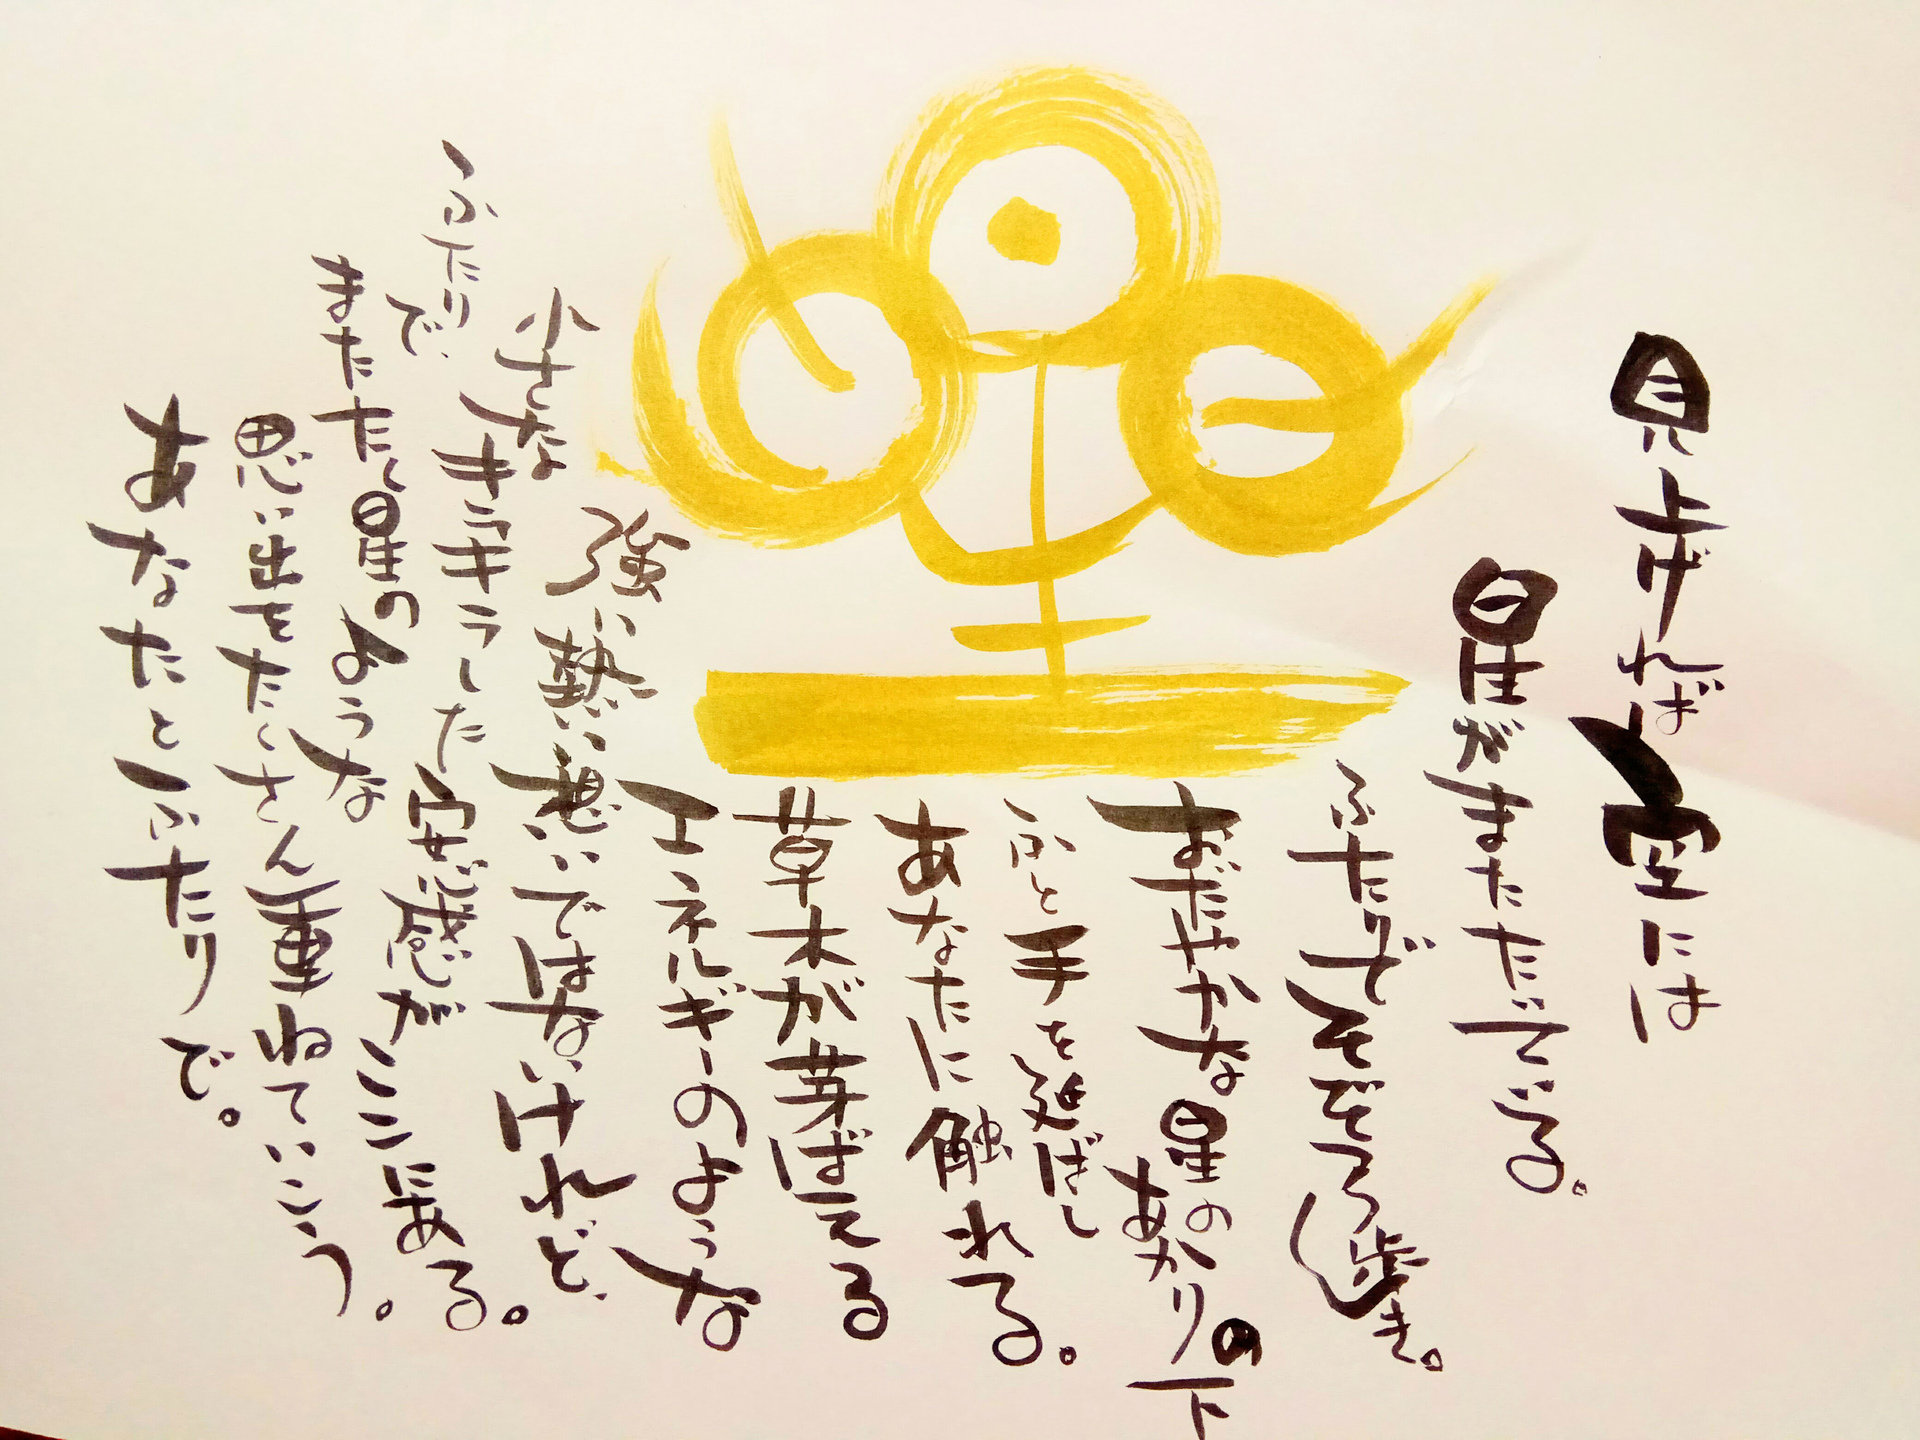 星
見上げれば空には
星がまたたいている。
ふたりでそぞろ歩き。
おだやかな星のあかりの下
ふと手を延ばし
あなたに触れる。
草木が芽ばえる
エネルギーのような
強い熱い想いではないけれど、
小さな
キラキラした
安心感が
ここにある。
ふたりで、
またたく星のような
思い出をたくさん重ねていこう。
あなたとふたりで。